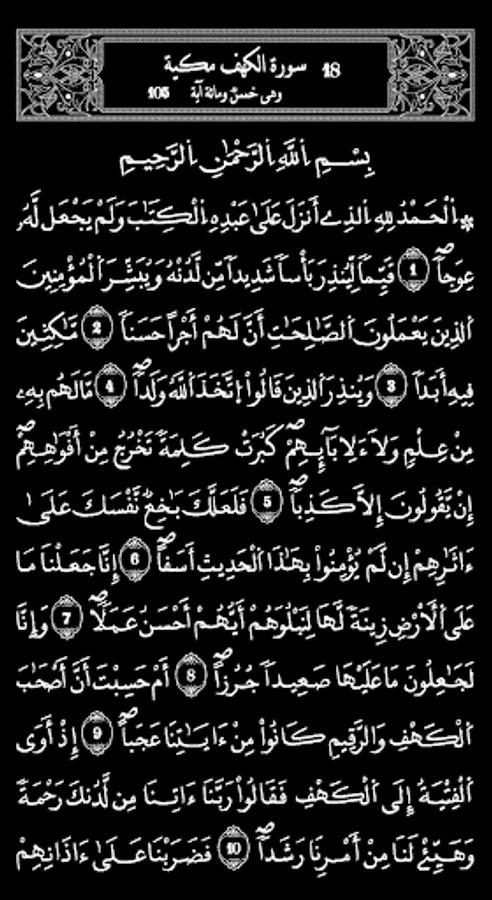 18 سورة الكهف مكية
وهي خمس ومائة آية 105
بِسْمِ اِ۬للَّهِ اِ۬لرَّحْمَٰنِ اِ۬لرَّحِيمِ
۞ اَ۬لْحَمْدُ لِلهِ اِ۬لذِےٓ أَنزَلَ عَلَىٰ عَبْدِهِ اِ۬لْكِتَٰبَ وَلَمْ يَجْعَل لَّهُۥ
عِوَجاًۖ 1 قَيِّماٗ لِّيُنذِرَ بَأْساٗ شَدِيداٗ مِّن لَّدُنْهُ وَيُبَشِّرَ اَ۬لْمُؤْمِنِينَ
اَ۬لذِينَ يَعْمَلُونَ اَ۬لصَّٰلِحَٰتِ أَنَّ لَهُمْ أَجْراً حَسَناٗ 2 مَّٰكِثِينَ
فِيهِ أَبَداٗ 3 وَيُنذِرَ اَ۬لذِينَ قَالُواْ اُ۪تَّخَذَ اَ۬للَّهُ وَلَداٗۖ 4 مَّا لَهُم بِهِۦ
مِنْ عِلْمٖ وَلَا ءَلِابَآئِهِمْۖ كَبُرَتْ كَلِمَةٗ تَخْرُجُ مِنْ أَفْوَٰهِهِمْۖ
إِنْ يَّقُولُونَ إِلَّا كَذِباٗۖ 5 فَلَعَلَّكَ بَٰخِعٞ نَّفْسَكَ عَلَىٰٓ
ءَاثٰ۪رِهِمْ إِن لَّمْ يُؤْمِنُواْ بِهَٰذَا اَ۬لْحَدِيثِ أَسَفاًۖ 6 إِنَّا جَعَلْنَا مَا
عَلَى اَ۬لْأَرْضِ زِينَةٗ لَّهَا لِنَبْلُوَهُمْ أَيُّهُمْ أَحْسَنُ عَمَلاٗۖ 7 وَإِنَّا
لَجَٰعِلُونَ مَا عَلَيْهَا صَعِيداٗ جُرُزاًۖ 8 أَمْ حَسِبْتَ أَنَّ أَصْحَٰبَ
اَ۬لْكَهْفِ وَالرَّقِيمِ كَانُواْ مِنْ ءَايَٰتِنَا عَجَباًۖ 9 إِذْ أَوَى
اَ۬لْفِتْيَةُ إِلَى اَ۬لْكَهْفِ فَقَالُواْ رَبَّنَآ ءَاتِنَا مِن لَّدُنكَ رَحْمَةٗ
وَهَيِّئْ لَنَا مِنْ أَمْرِنَا رَشَداٗۖ 10 فَضَرَبْنَا عَلَىٰٓ ءَاذَانِهِمْ